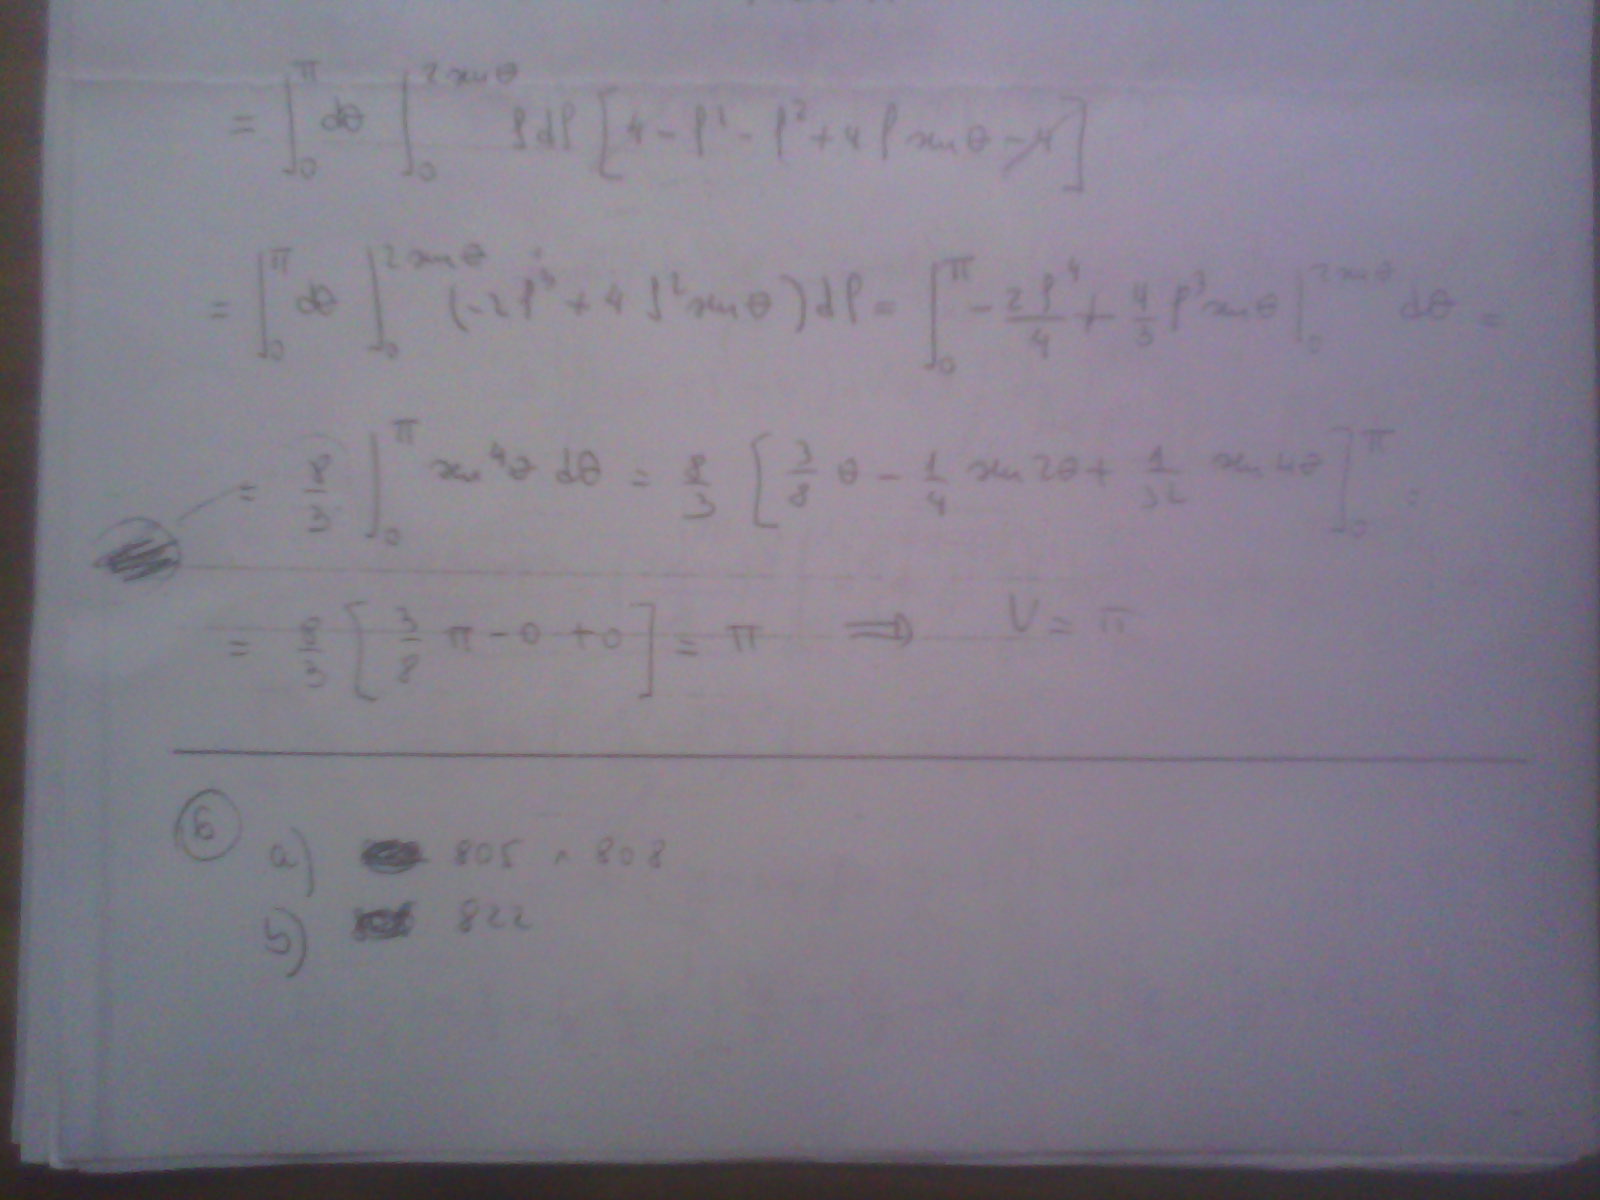 = ∫₀^π dθ ∫₀^{2 sen θ} ρ dρ [4 - ρ² - ρ² + 4 ρ sen θ - 4]
= ∫₀^π dθ ∫₀^{2 sen θ} (-2ρ³ + 4 ρ² sen θ) dρ = ∫₀^π - 2ρ⁴/4 + 4/3 ρ³ sen θ |₀^{2 sen θ} dθ =
= 8/3 ∫₀^π sen⁴θ dθ = 8/3 [3/8 θ - 1/4 sen 2θ + 1/32 sen 4θ]₀^π =
= 8/3 [3/8 π - 0 + 0] = π ⟹ V = π
6
a) 805 808
b) 822